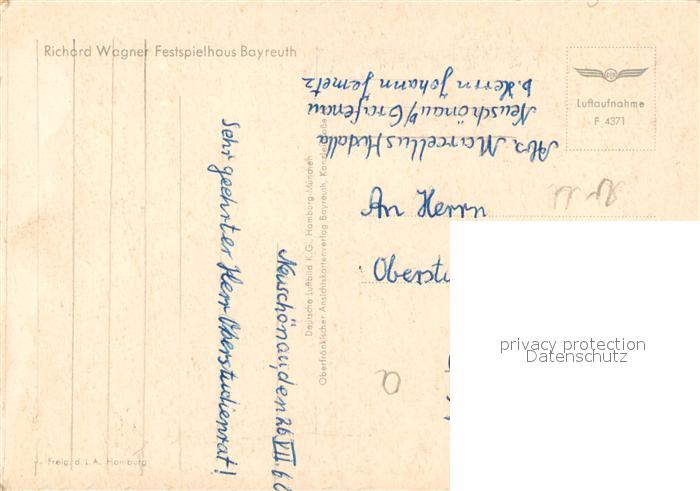 Richard Wagner Festspielhaus Bayreuth
Luftaufnahme
F 4371
Abs. Marcellus Hudalla
Neuschönau b/Grafenau
b. Herrn Johann Jemetz
Deutsche Luftbild K.G., Hamburg-München
Oberfränkischer Ansichtskartenverlag Bayreuth, Kanzleistraße
An Herrn
Oberstu
Neuschönau, den 26. VII. 6
Sehr geehrter Herr Oberstudienrat!
a
Freig. d. L.A. Hamburg
privacy protection
Datenschutz